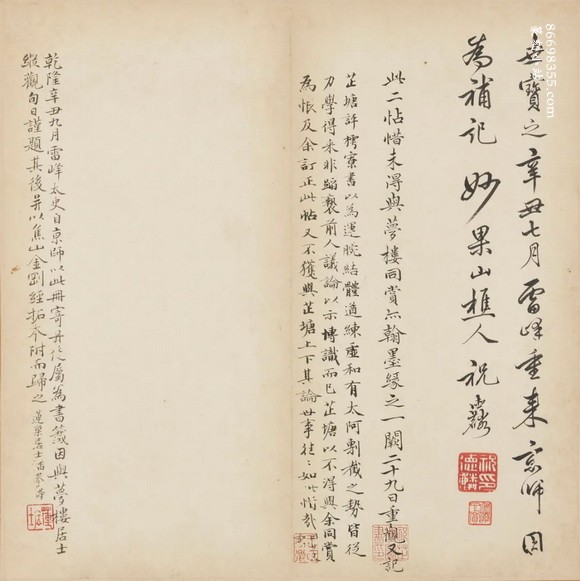 宝寶之辛丑七月雷峰重来京師因
為補記 妙果山樵人祝
此二帖惜未得與夢樓同賞亦翰墨緣之一闕二十九日重觀又記
芷塘許樗寮書以為運腕結體遒練虛和有太阿剸截之勢皆從
力學得来非蹈襲前人議論以示博識而已芷塘以不得與余同賞
為恨及余訂正此帖又不獲與芷塘上下其論世事往々如此惜哉
乾隆辛丑九月雷峰太史自京師以此冊寄丹徒屬為書籤因與夢樓居士
縱觀旬日謹題其後并以焦山金剛經拓本附而歸之 蓮巢居士潘恭壽
86698355.com